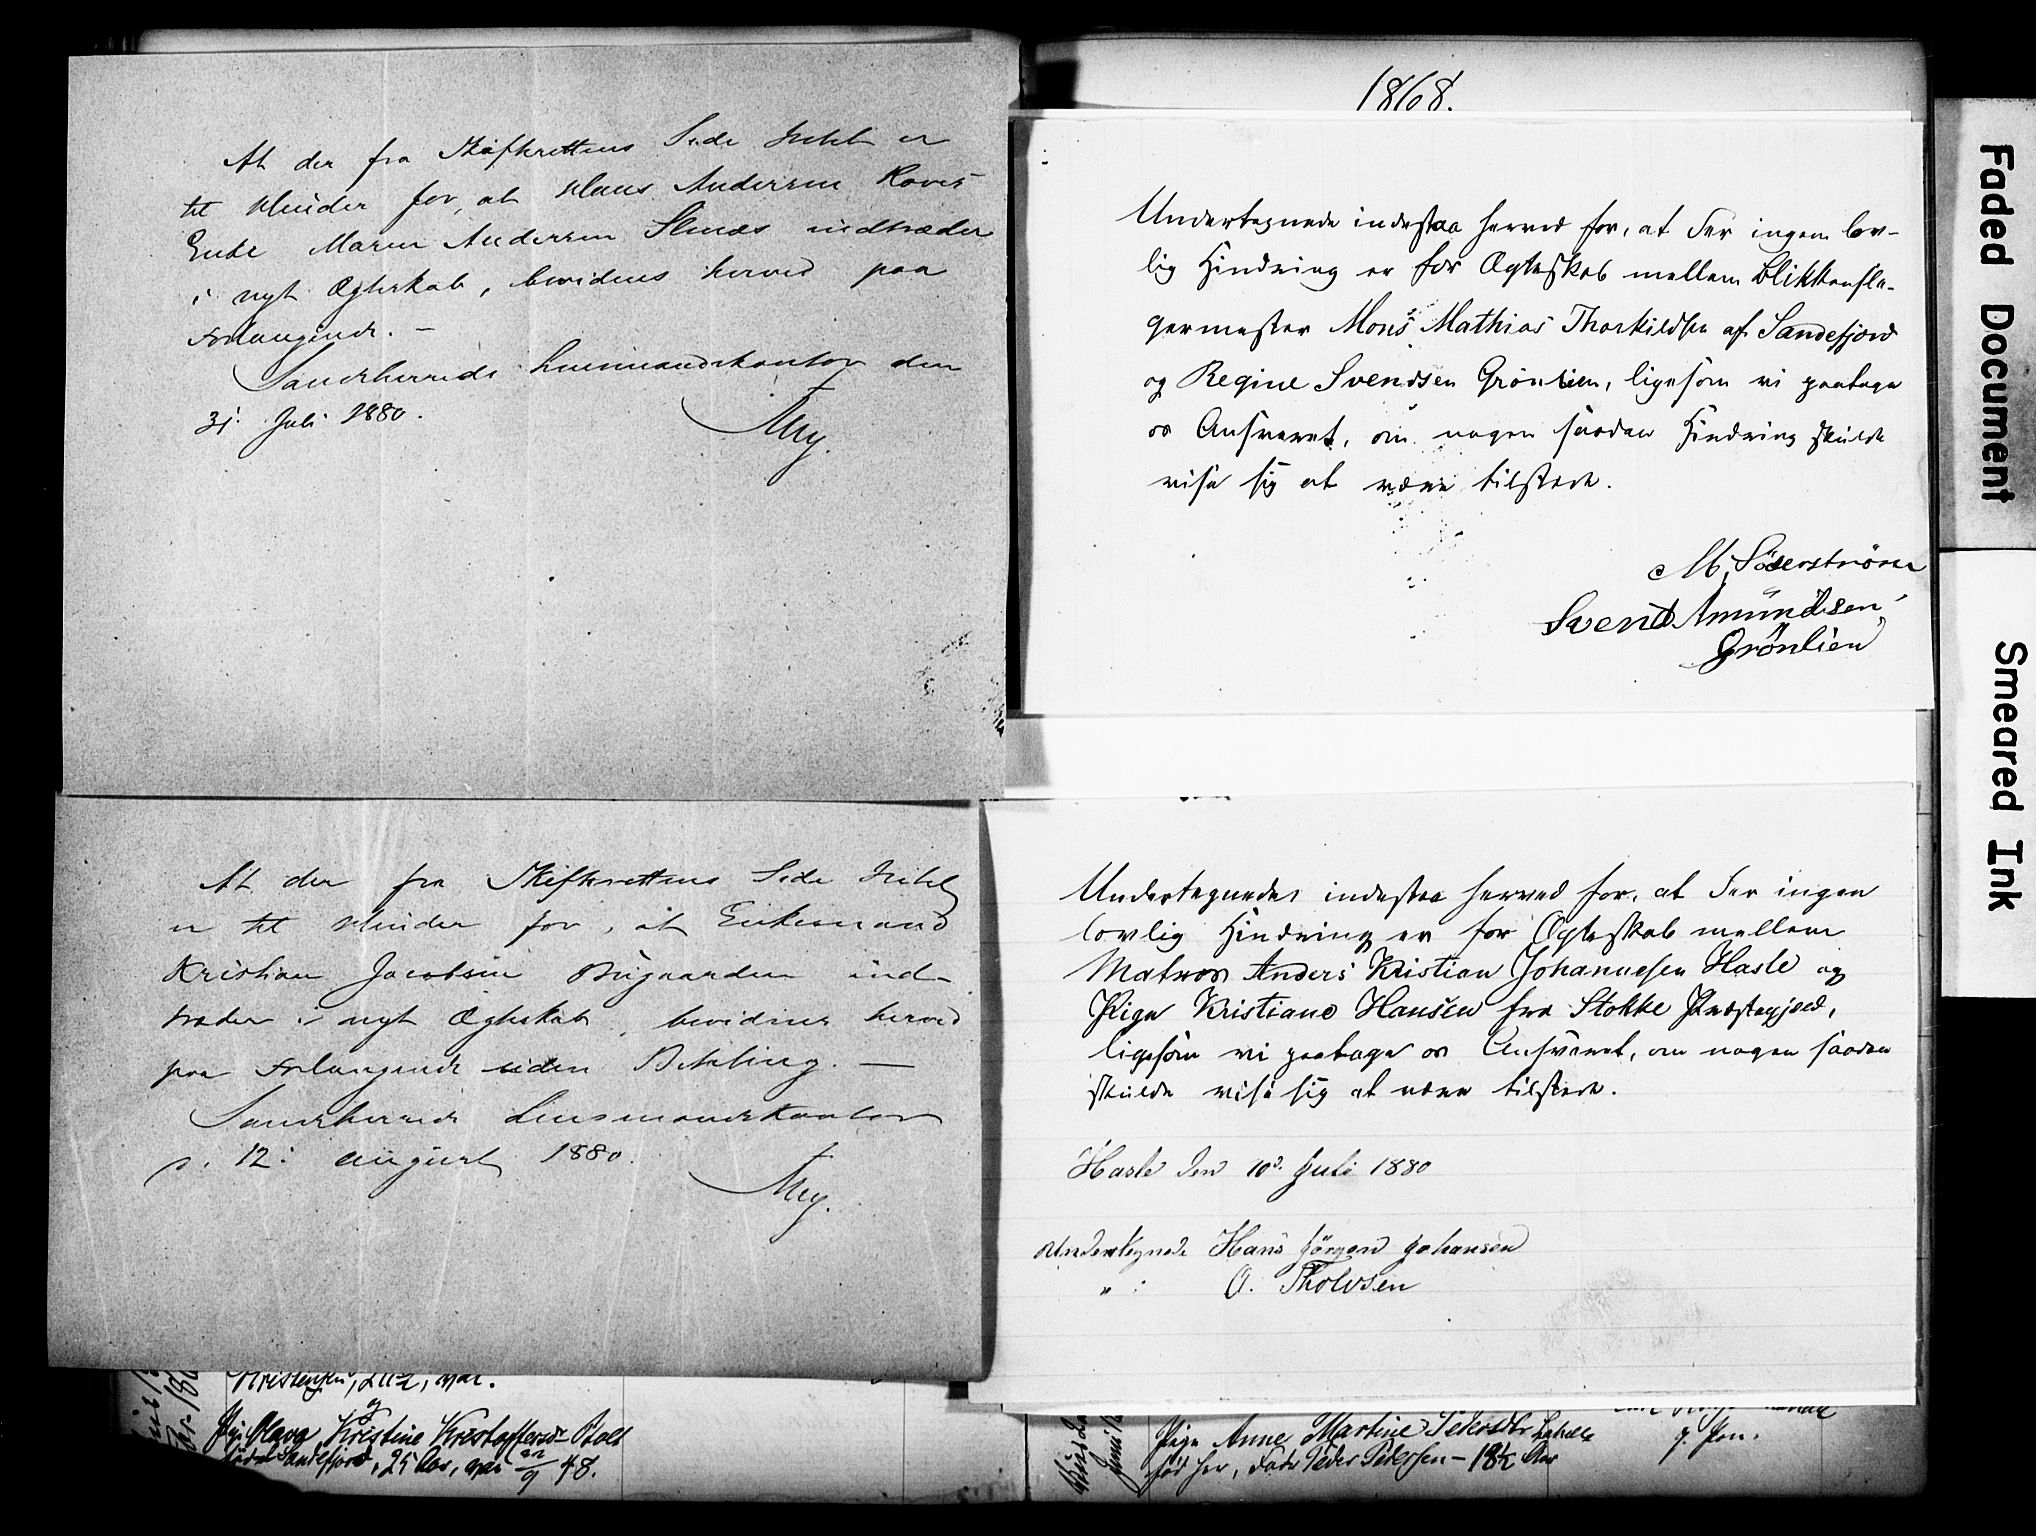 At der fra Skifterettens Side Intet er
til Hinder for, at Hans Andersen Roves
Enke Maren Andersen Skuæs indtræder
i nyt Ægteskab, bevidnes herved paa
Forlangende. –
Sandeherreds Lensmandskontor den
31. Juli 1880.
My.
At der fra Skifterettens Side Intet
er til Hinder for, at Enkemand
Kristian Jacobsen Bugaarden ind-
træder i nyt Ægteskab, bevidnes herved
paa Forlangende uden Betaling. –
Sandeherreds Lensmandskontor
d. 12. august 1880.
My.
Kristensen, 20½, vac.
og
Pige Mava Kristine Kristoffersdr Bolt
født Sandefjord, 25 Aar, vac. 48.
1868.
Undertegnede indestaa herved for, at der ingen lov-
lig Hindring er for Ægteskab mellem Blikkensla-
germester Mons Mathias Thorkildsen af Sandefjord
og Regine Svendsen Grönlien, ligesom vi paatage
os Ansvaret, om nogen saadan Hindring skulde
vise sig at være tilstede.
M. Söderström
Svend Amundsen
Grönlien
Undertegnedes indestaa herved for, at der ingen
lovlig Hindring er for Ægteskab mellem
Matros Anders Kristian Johannesen Hasle og
Pige Kristiane Hansen fra Stokke Præstegjeld,
ligesom vi paatage os Ansvaret, om nogen saadan
skulde vise sig at være tilstede.
Hasle den 10d. Juli 1880
Undertegnede Hans Jörgen Johansen
" : O. Tholvsen
Pige Anne Martine Pedersdtr
født her, Fader Peder Pedersen – 18½ Aar
g. Jon.
Faded Document
Smeared Ink